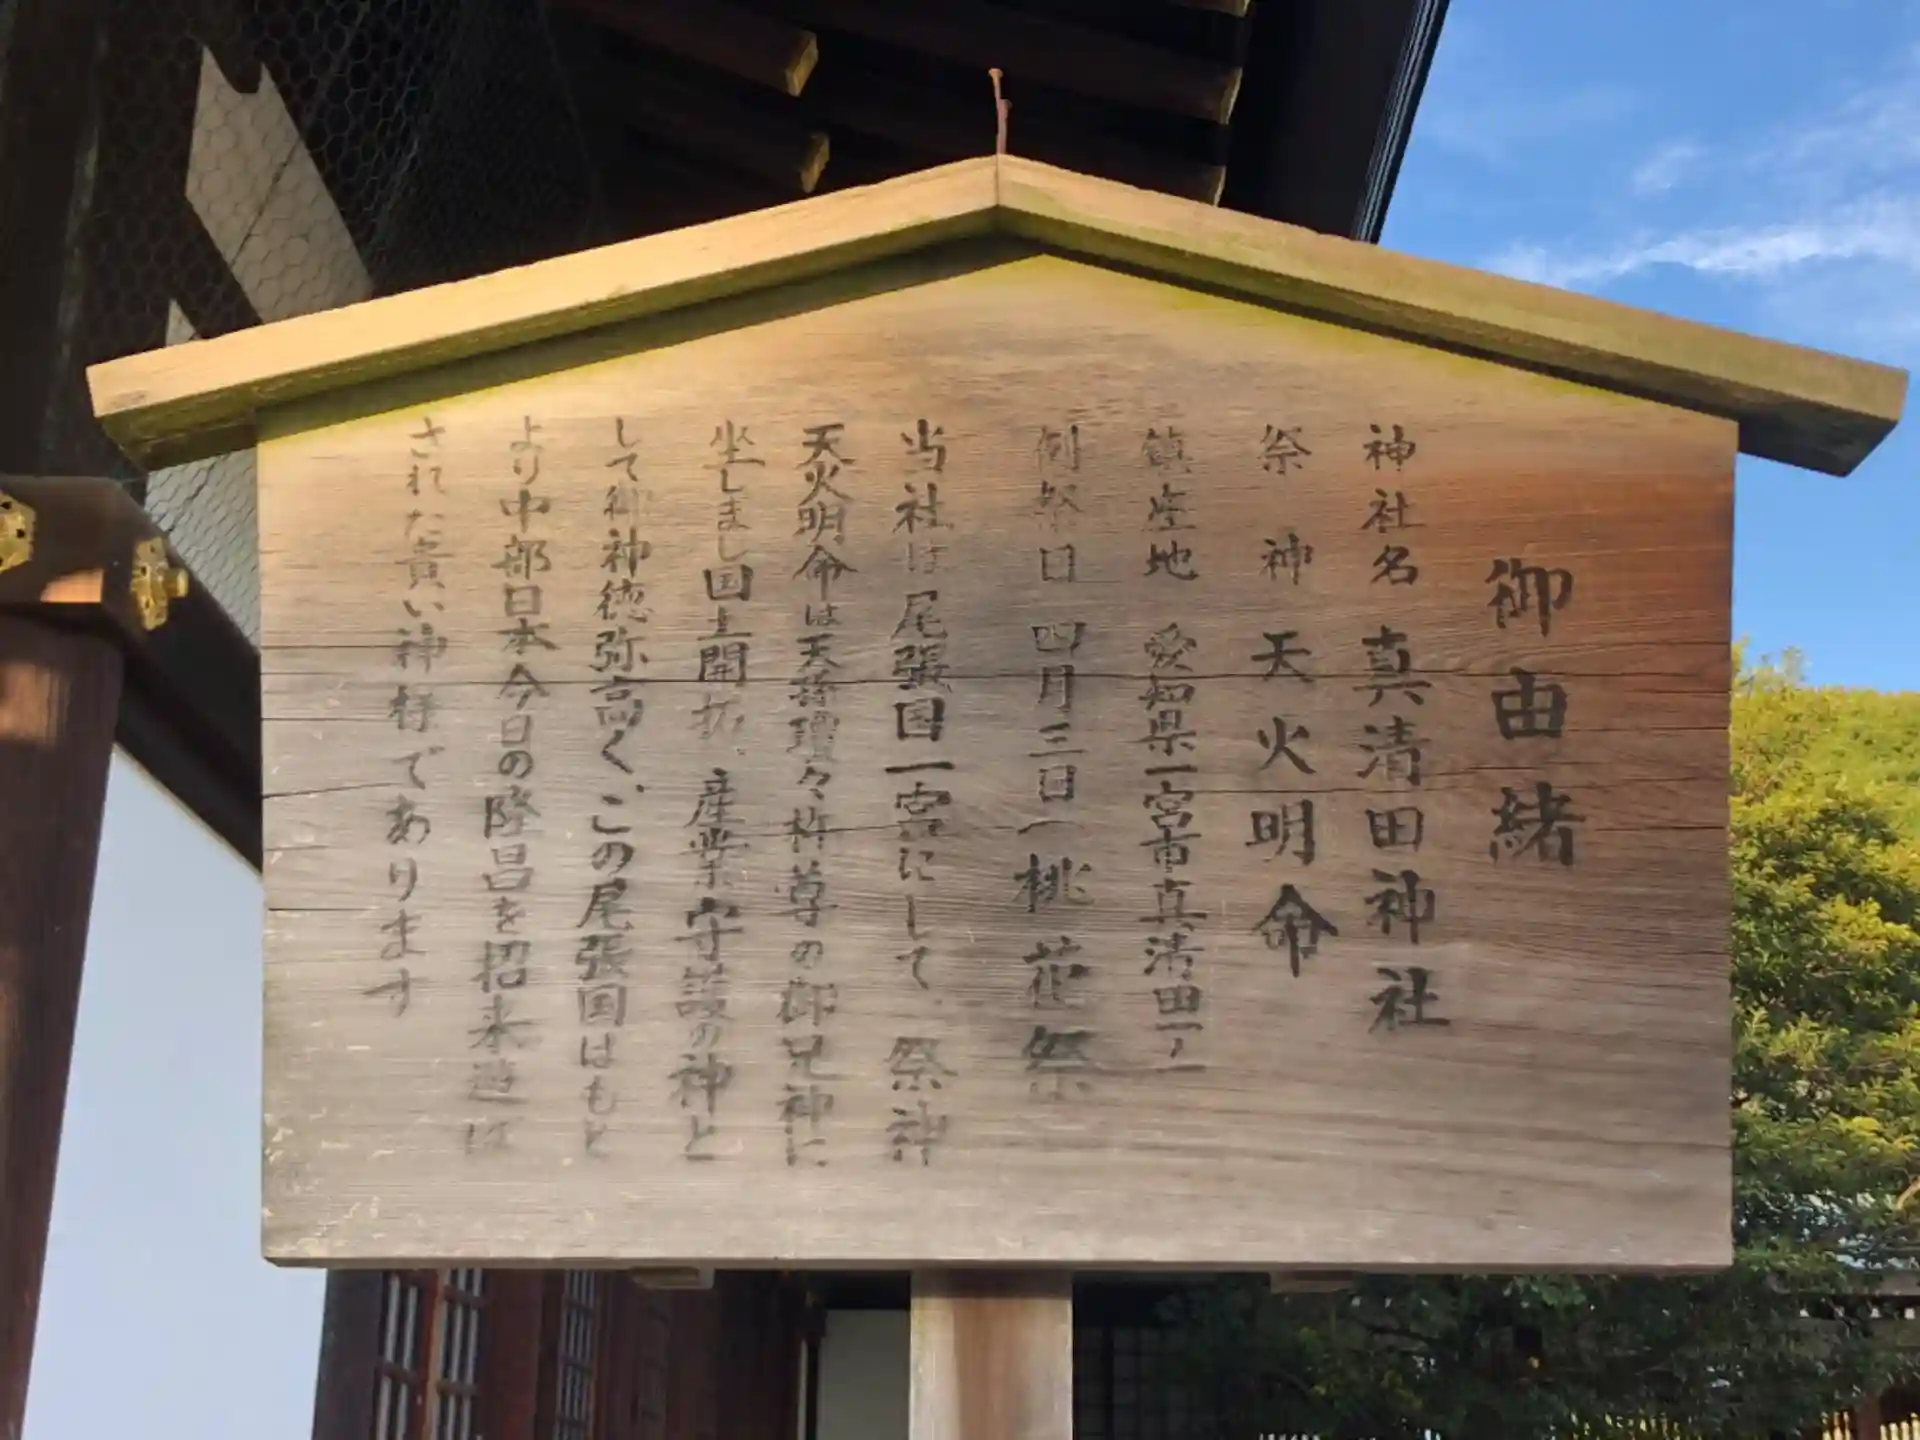 御由緒
神社名 真清田神社
祭神 天火明命
鎮座地 愛知県一宮市真清田一ノ一
例祭日 四月三日(桃花祭
当社は尾張国一宮にして、祭神
天火明命は天孫瓊々杵尊の御兄神に
坐しまし国土開拓、産業守護の神と
して御神徳弥高く、この尾張国はもと
より中部日本今日の隆昌を招来遊ば
された貴い神様であります